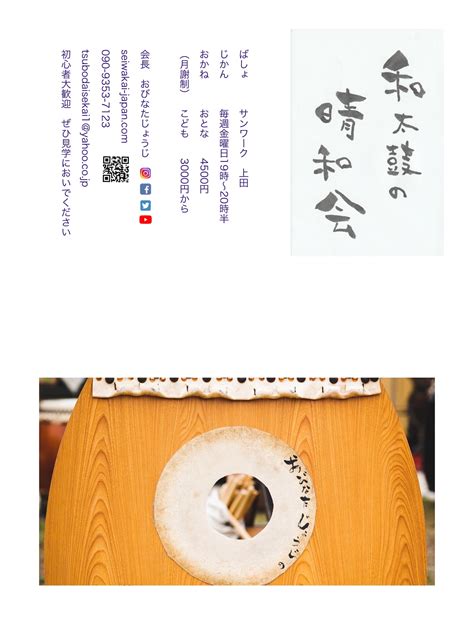 和太鼓の
晴和会
ばしょ サンワーク 上田
じかん 毎週金曜日19時〜20時半
おかね おとな 4500円
（月謝制） こども 3000円から
会長 おびなたじょうじ
seiwakai-japan.com
090-9353-7123
tsubodaisekai1@yahoo.co.jp
初心者大歓迎 ぜひ見学においでください
おびなたじょうじ。